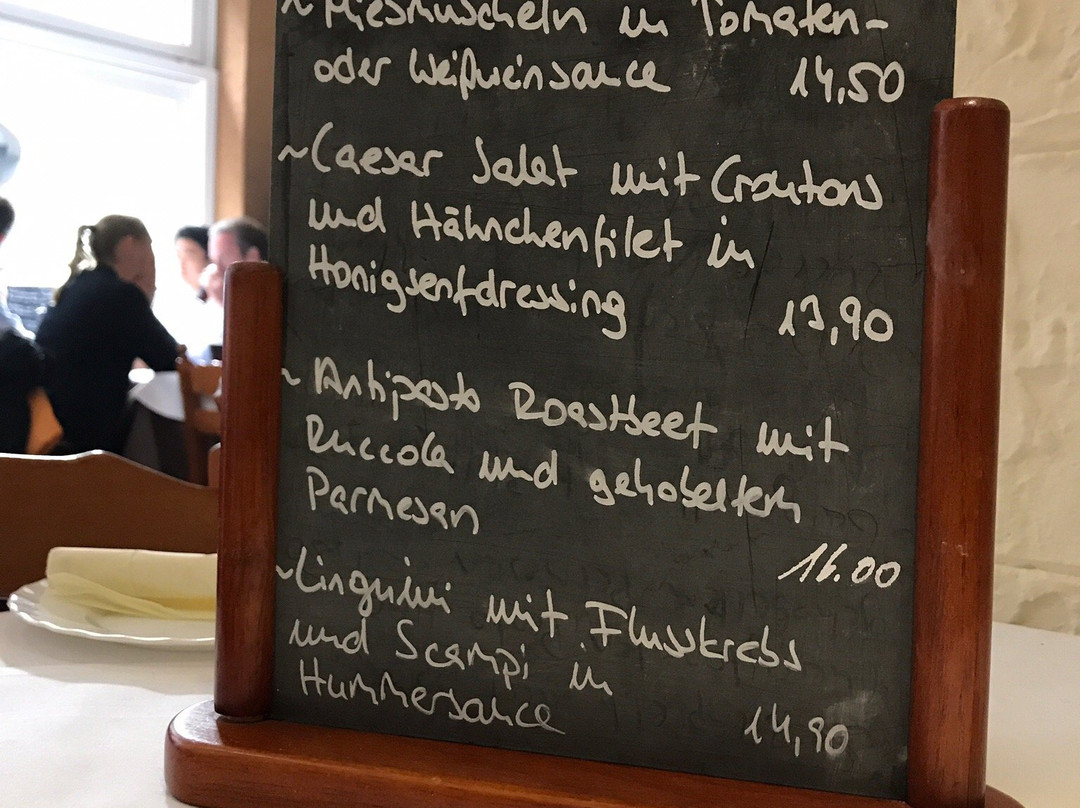 ~ Miesmuscheln in Tomaten-
oder Weißweinsauce 14,50
~ Caesar Salat mit Croutons
und Hähnchenfilet in
Honigsenfdressing 13,90
~ Antipasto Roastbeef mit
Ruccola und gehobeltem
Parmesan
16.00
~ Linguini mit Flusskrebs
und Scampi in
Hummersauce 14,90